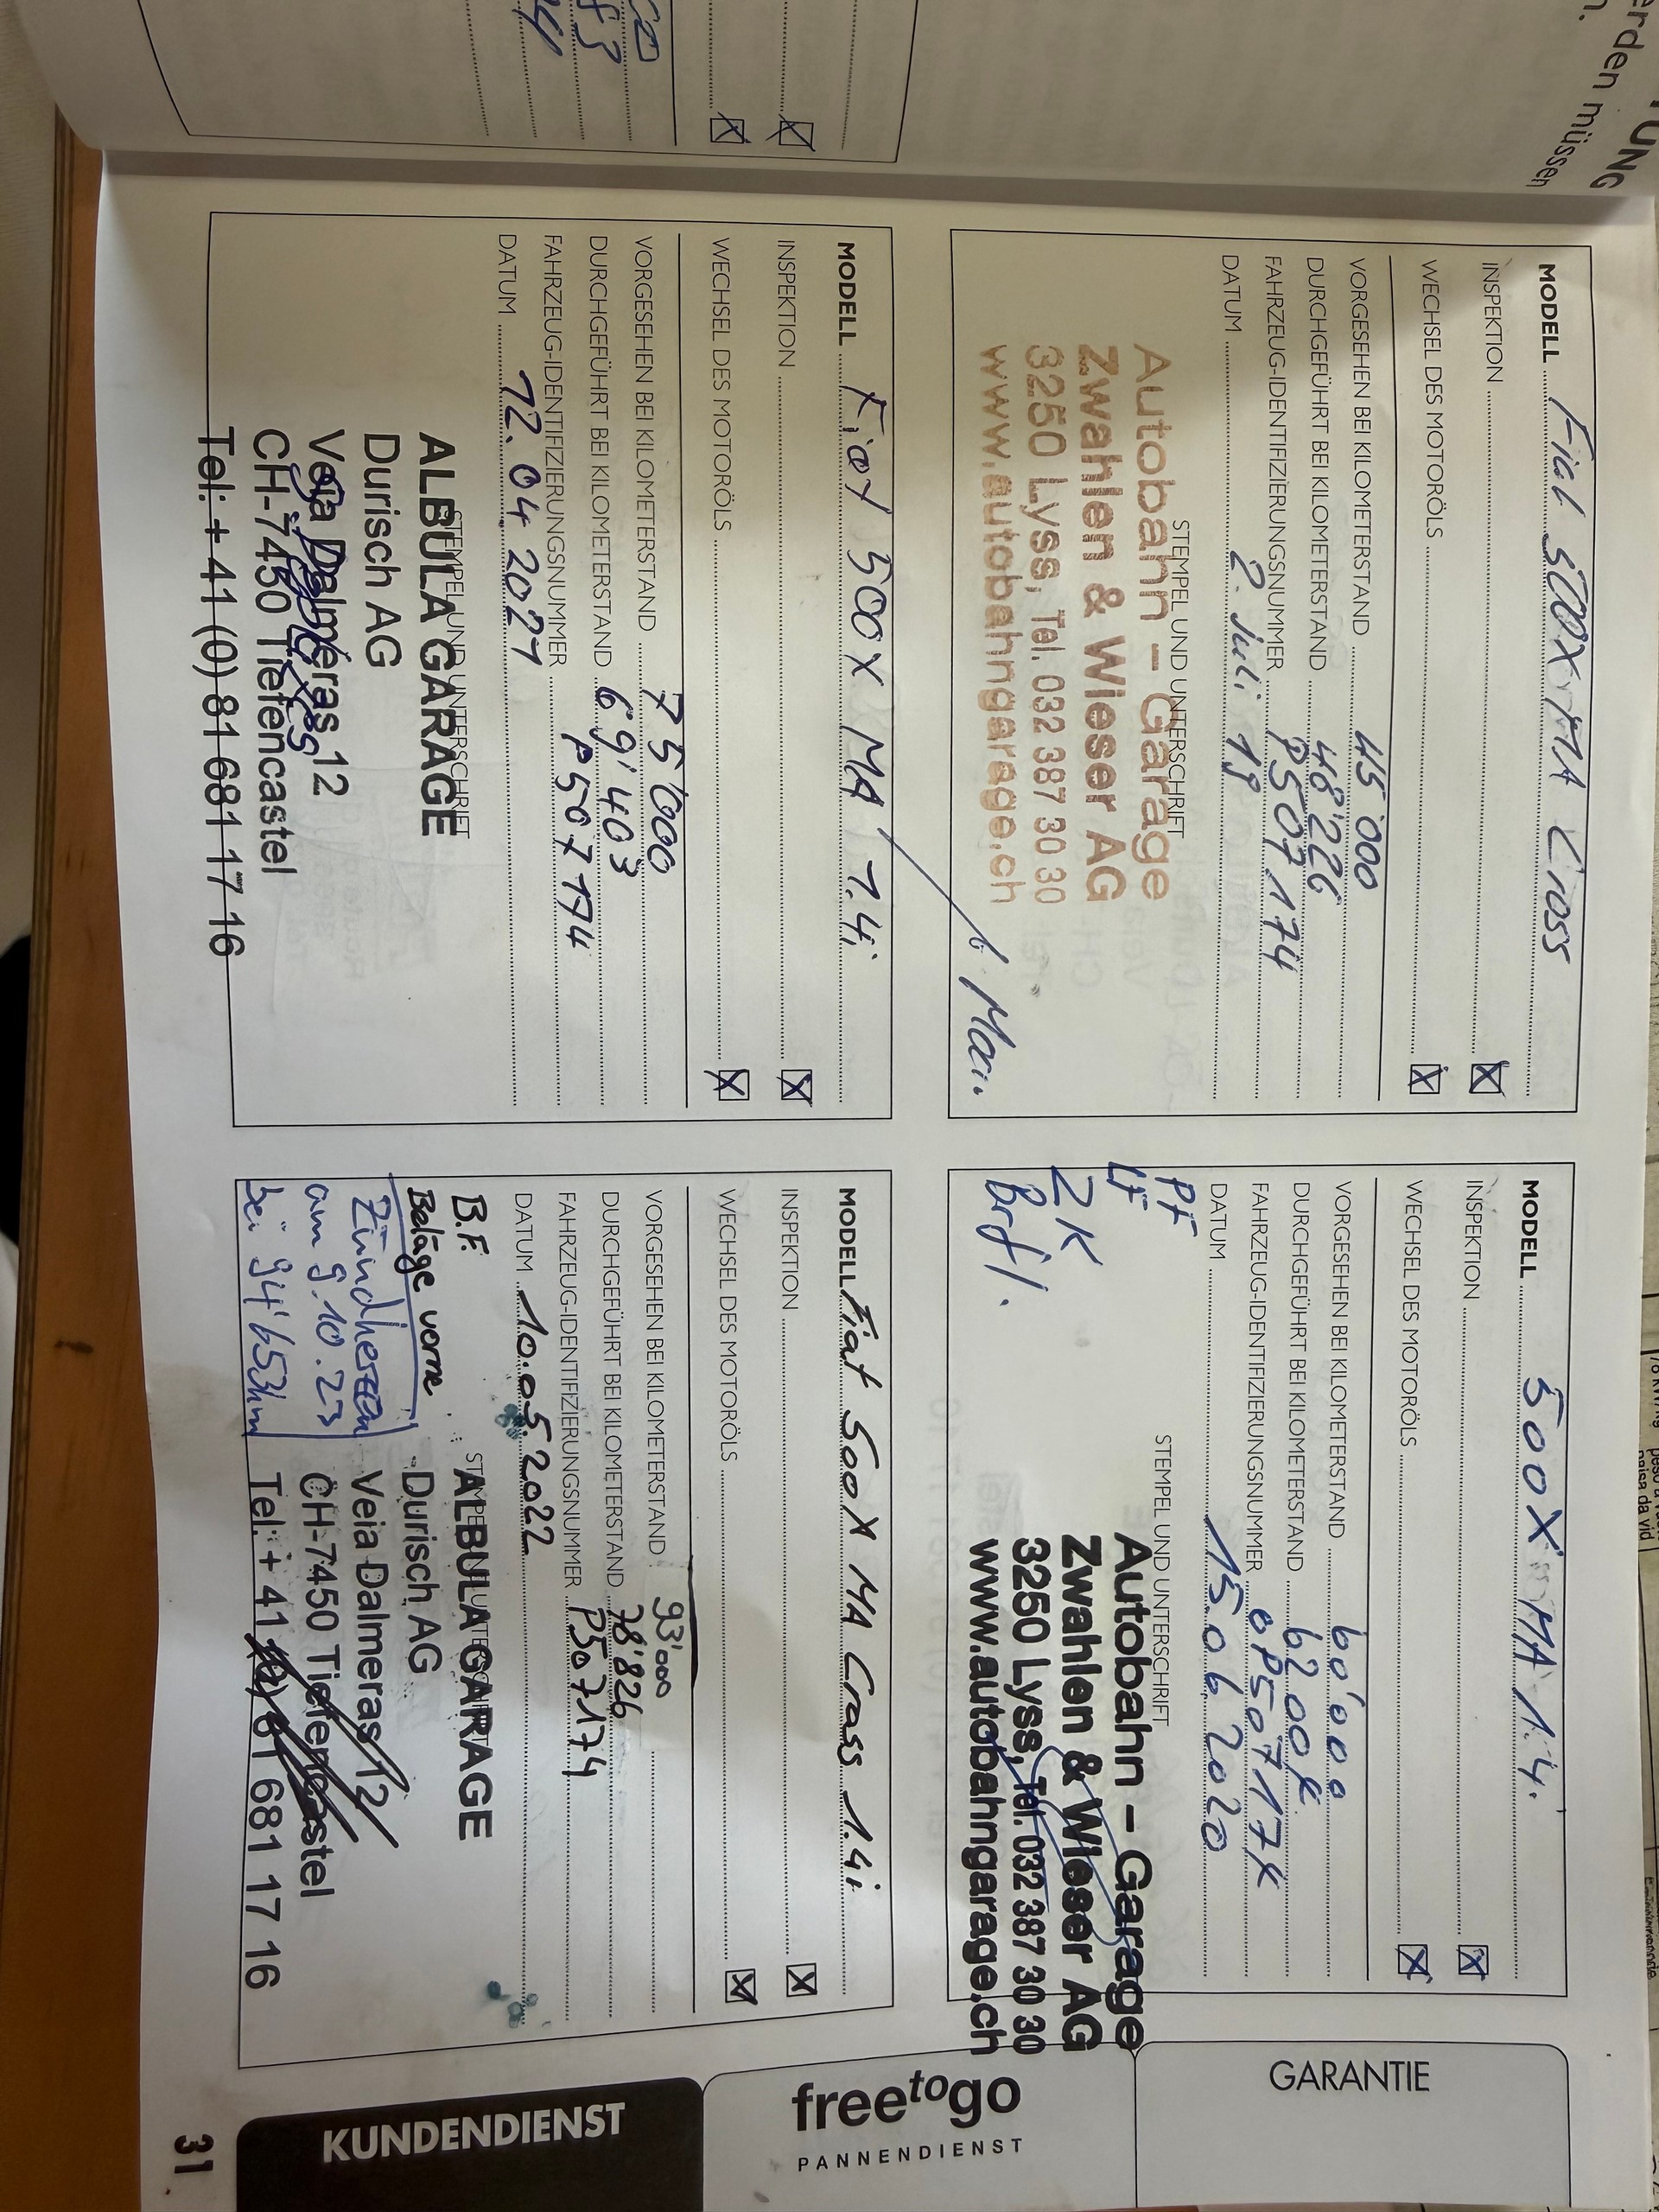 TUNG
erden müssen
n.
MODELL Fiat 500X MA Cross
INSPEKTION ☒
WECHSEL DES MOTORÖLS ☒
VORGESEHEN BEI KILOMETERSTAND 45'000
DURCHGEFÜHRT BEI KILOMETERSTAND 48'226
FAHRZEUG-IDENTIFIZIERUNGSNUMMER P507174
DATUM 2. Juli 19
STEMPEL UND UNTERSCHRIFT
Autobahn – Garage
Zwahlen & Wieser AG
3250 Lyss, Tel. 032 387 30 30
www.autobahngarage.ch
MODELL 500X MA 1.4.
INSPEKTION ☒
WECHSEL DES MOTORÖLS ☒
VORGESEHEN BEI KILOMETERSTAND 60'000
DURCHGEFÜHRT BEI KILOMETERSTAND 62004
FAHRZEUG-IDENTIFIZIERUNGSNUMMER P507174
DATUM 15.06.2020
STEMPEL UND UNTERSCHRIFT
PF
LF
ZK
Brfl.
Autobahn – Garage
Zwahlen & Wieser AG
3250 Lyss, Tel. 032 387 30 30
www.autobahngarage.ch
MODELL Fiat 500X MA 1.4i
INSPEKTION ☒
WECHSEL DES MOTORÖLS ☒
VORGESEHEN BEI KILOMETERSTAND 75'000
DURCHGEFÜHRT BEI KILOMETERSTAND 69'403
FAHRZEUG-IDENTIFIZIERUNGSNUMMER P507174
DATUM 12.04 2021
STEMPEL UND UNTERSCHRIFT
ALBULA GARAGE
Durisch AG
Veia Dalmeras 12
CH-7450 Tiefencastel
Tel: + 41 (0) 81 681 17 16
MODELL Fiat 500X MA Cross 1.4i
INSPEKTION ☒
WECHSEL DES MOTORÖLS ☒
VORGESEHEN BEI KILOMETERSTAND 93'000
DURCHGEFÜHRT BEI KILOMETERSTAND 78'826
FAHRZEUG-IDENTIFIZIERUNGSNUMMER P507174
DATUM 10.05.2022
STEMPEL UND UNTERSCHRIFT
B.F.
Beläge vorne
Zündkerzen
am 9.10.23
bei 94'653km
ALBULA GARAGE
Durisch AG
Veia Dalmeras 12
CH-7450 Tiefencastel
Tel: + 41 (0) 81 681 17 16
GARANTIE
freetogo
PANNENDIENST
KUNDENDIENST
31